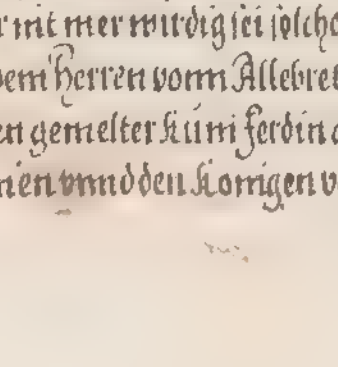 r nit mer wirdig sei solch
dem Herren vonn Allebret
en gemelter kúni ferdin
nien vnnd den konigen v